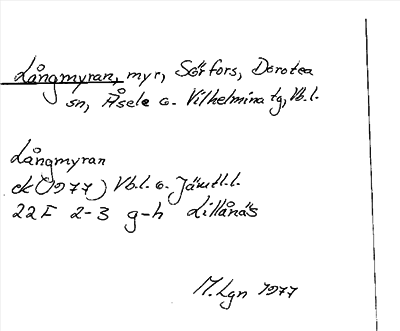 Långmyran, myr, Sörfors, Dorotea
sn, Åsele o. Vilhelmina tg, Vb.l.
Långmyran
ek (1977) Vb.l. o. Jämtl.l.
22F 2-3 g-h Lillånäs
M. Lgn 1977